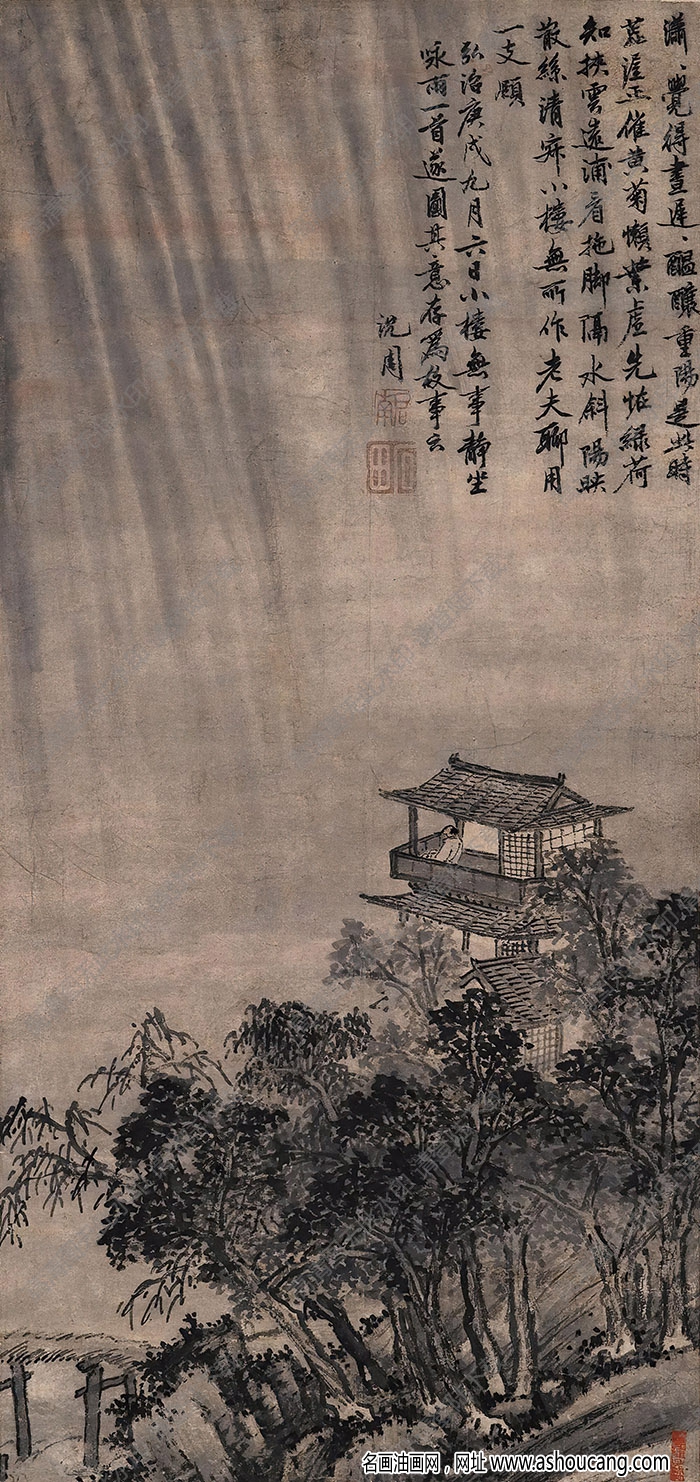 瀟、覺得晝遲、醞釀重陽是此時
惹溼正催黃菊懶葉虛先怯綠荷
知挾雲遠浦看拖脚隔水斜陽映
散絲清寂小樓無所作老夫聊用
一支頤
弘治庚戌九月六日小樓無事靜坐
咏雨一首遂圖其意存爲故事云
沈周
名画油画网，网址 www.ashoucang.com